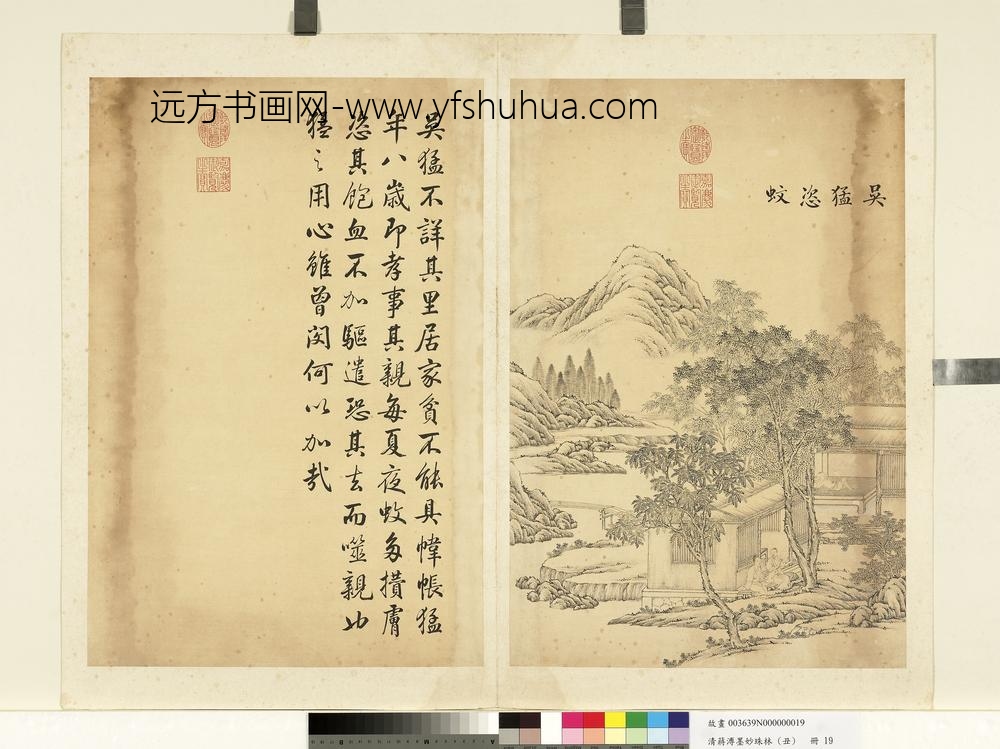 远方书画网-www.yfshuhua.com
吳猛恣蚊
吳猛不詳其里居家貧不能具幃帳猛
年八歲即孝事其親每夏夜蚊多攢膚
恣其飽血不加驅遣恐其去而噬親也
猛之用心雖曾閔何以加哉
故畫 003639N000000019
清蔣溥墨妙珠林(丑) 冊 19